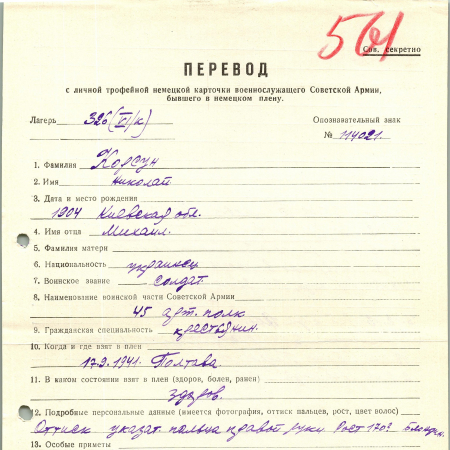 561
Сов. секретно
ПЕРЕВОД
с личной трофейной немецкой карточки военнослужащего Советской Армии,
бывшего в немецком плену.
Лагерь 326 (VI/к) Опознавательный знак
№ 114021.
1. Фамилия Корсун
2. Имя Николай
3. Дата и место рождения
1904 Киевская обл.
4. Имя отца Михаил.
5. Фамилия матери
6. Национальность украинец
7. Воинское звание солдат
8. Наименование воинской части Советской Армии
45 арт. полк
9. Гражданская специальность крестьянин.
10. Когда и где взят в плен
17.9.1941. Полтава.
11. В каком состоянии взят в плен (здоров, болен, ранен)
здоров.
12. Подробные персональные данные (имеется фотография, оттиск пальцев, рост, цвет волос)
Оттиск указат. пальца правой руки Рост 170
13. Особые приметы